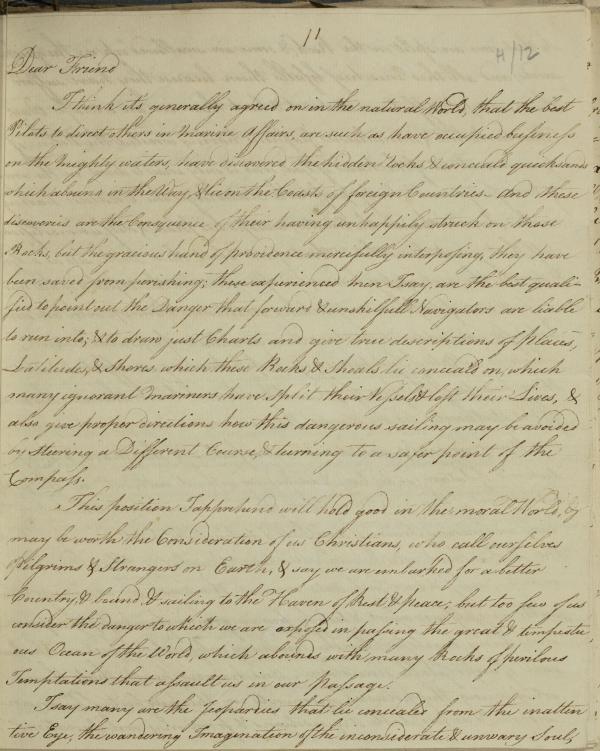 11
H/12
Dear Friend
I think its generally agreed on in the natural World, that the best
Pilots to direct others in Marine Affairs, are such as have occupied business
on the mighty waters, have discovered the hidden Rocks & conceald quicksands
which abound in the Way, & lie on the Coasts of foreign Countries — And these
discoveries are the Consquence of their having unhappily struck on those
Rocks, but the gracious hand of providence mercifully interposing, they have
been saved from perishing; these experienced men I say, are the best quali-
fied to point out the Danger that forward & unskilfull Navigators are liable
to run into; & to draw just Charts and give true descriptions of places,
Latitudes, & Shores which these Rocks & Shoals lie conceald on, which
many ignorant Mariners have split their Vessels & lost their Lives, &
also give proper directions how this dangerous sailing may be avoided
by Steering a Different Course, & turning to a safer point of the
Compass.
This position I apprehend will hold good in the moral World, &
may be worth the Consideration of us Christians, who call ourselves
Pilgrims & Strangers on Earth, & say we are embarked for a better
Country, & bound & sailing to the Haven of Rest & peace; but too few of us
consider the danger to which we are exposed in passing the great & tempestu
ous Ocean of the World, which abounds with many Rocks of perilous
Temptations that assault us in our Passage.
I say many are the Jeopardies that lie concealed from the inatten
tive Eye, the wandering Imagination of the inconsiderate & unwary Soul,